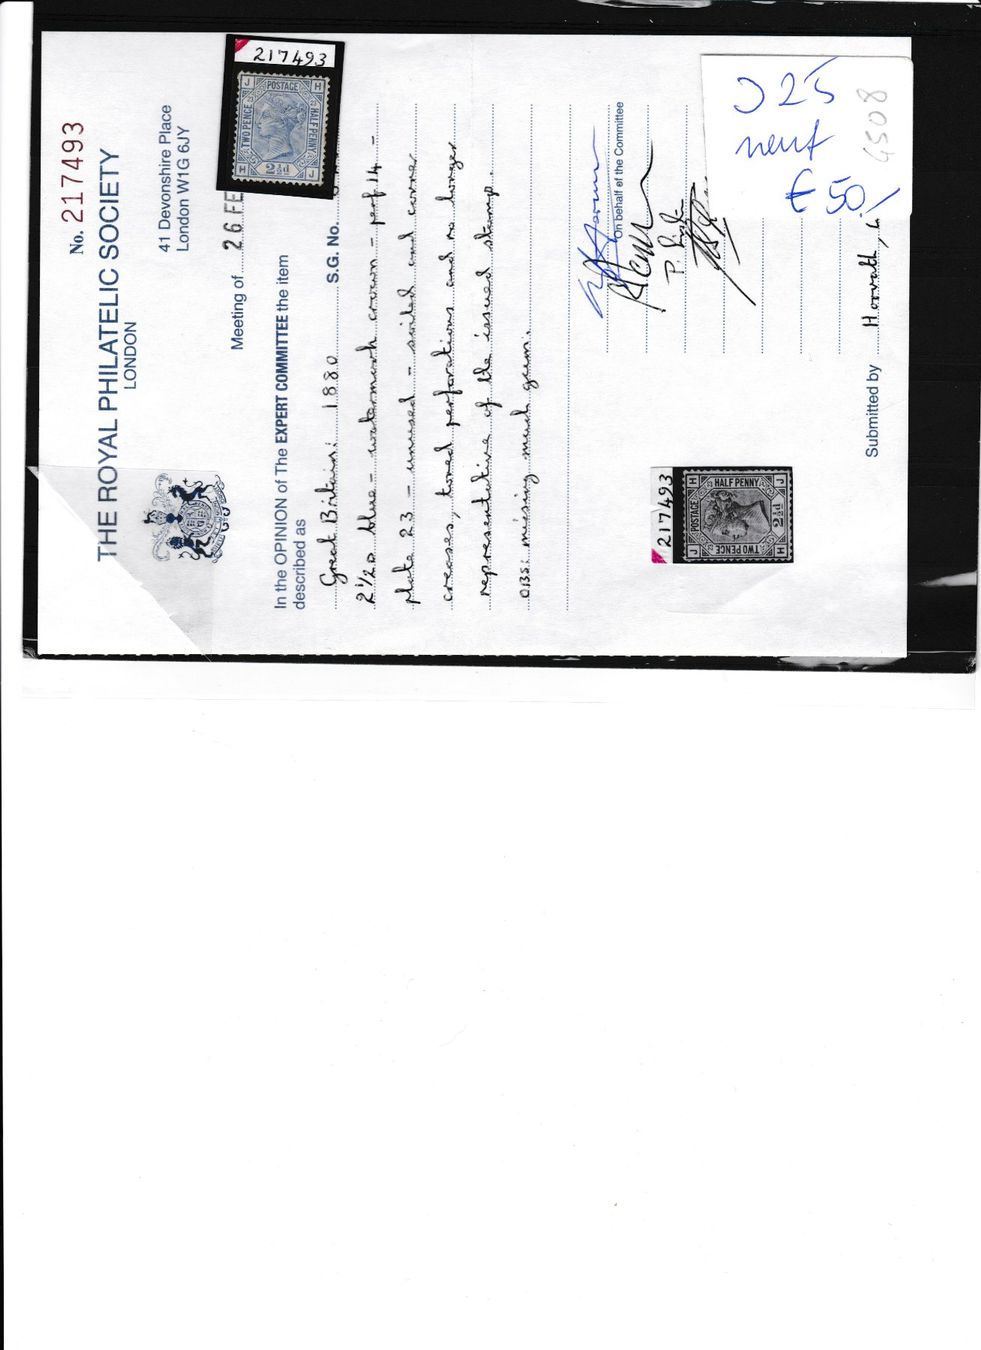 No. 217493
THE ROYAL PHILATELIC SOCIETY
LONDON
41 Devonshire Place
London W1G 6JY
Meeting of 26 FE
In the OPINION of The EXPERT COMMITTEE the item
described as
S.G. No.
Great Britain: 1880
2½d blue - watermark crown - perf 14 -
plate 23 - unused - soiled and corner
creases, toned perforations and no longer
representative of the issued stamp.
OBS: missing much gum.
On behalf of the Committee
P.
Submitted by Horvath, L
217493
J POSTAGE H
TWO PENCE
HALF PENNY
H 2½d J
217493
J POSTAGE H
TWO PENCE
HALF PENNY
H 2½d J
J 25
neuf
€ 50,-
4508